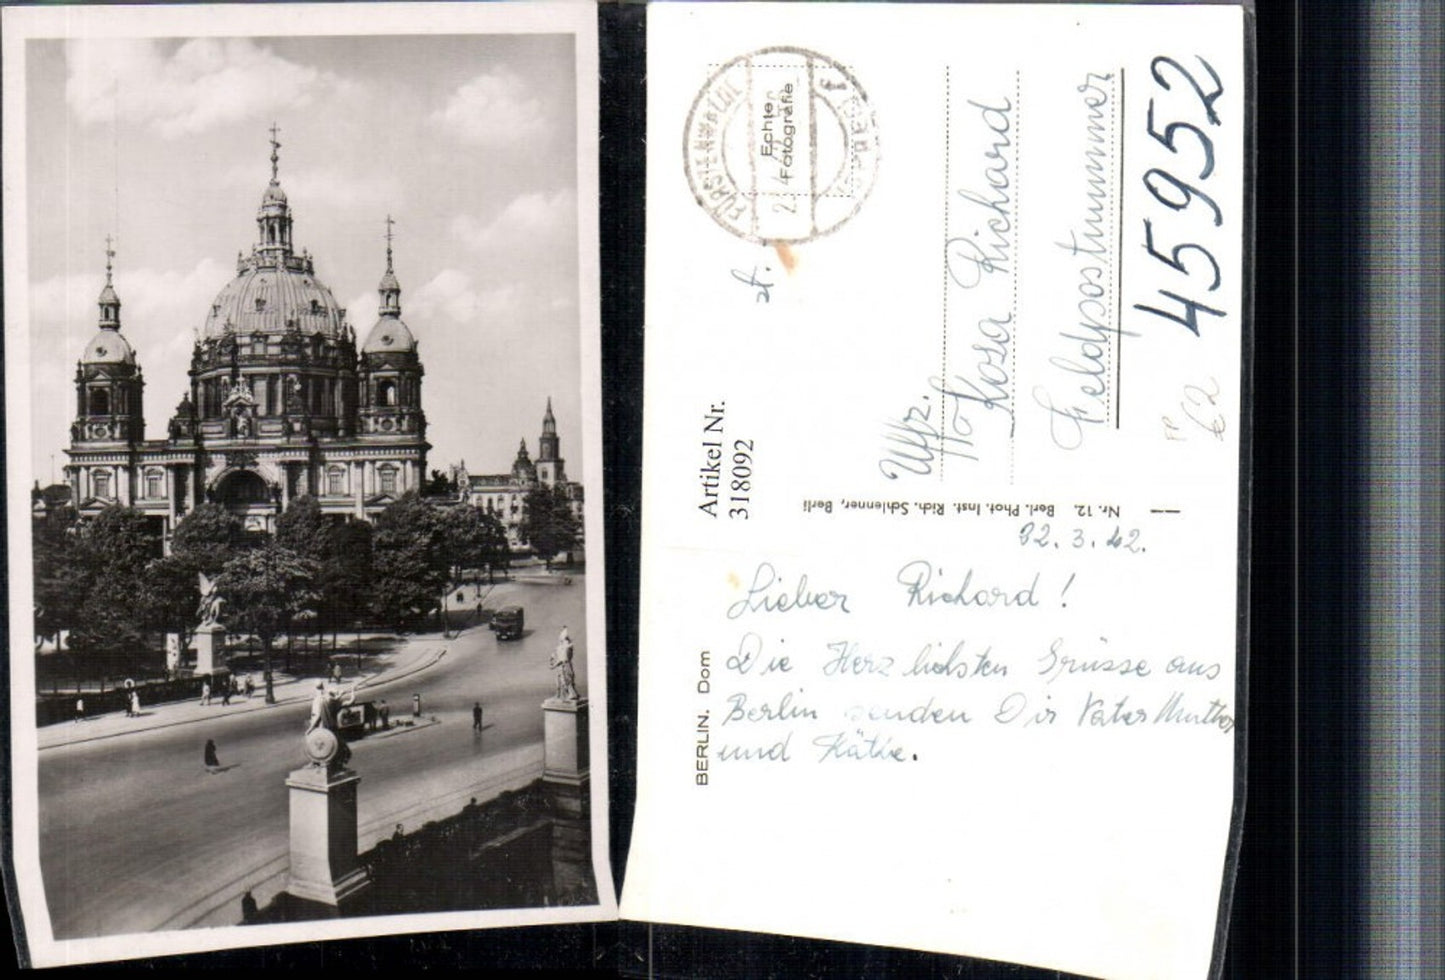 FÜRSTENWALDE
(Spree)
Echte
Fotografie
Uffz.
Kosa Richard
Feldpostnummer
45952
€2
Artikel Nr.
318092
Nr. 12. Berl. Phot. Inst. Rich. Schlenner, Berli
3.42.
Lieber Richard!
Die Herzlichsten Grüsse aus
Berlin senden Dir Vater Mutter
und Käthe.
BERLIN. Dom